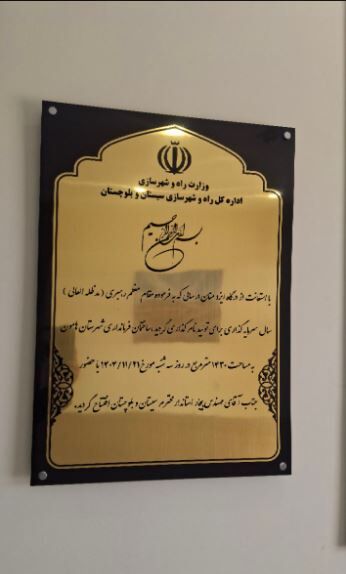 وزارت راه و شهرسازی
اداره کل راه و شهرسازی سیستان و بلوچستان
بسم الله الرحمن الرحیم
با استعانت از درگاه ایزد منان در سالی که به فرموده مقام معظم رهبری (مدظله العالی)
سال سرمایه گذاری برای تولید نام گذاری گردید ساختمان فرمانداری شهرستان هامون
به مساحت ۱۴۳۰ متر مربع در روز سه شنبه مورخ ۱۴۰۴/۱۱/۲۱ با حضور
جناب آقای مهندس بیجار استاندار محترم سیستان و بلوچستان افتتاح گردید.